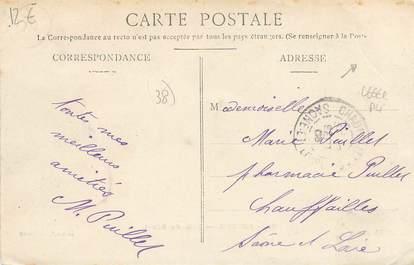 12 €
CARTE POSTALE
La Correspondance au recto n'est pas acceptée par tous les pays étrangers. (Se renseigner à la Poste
CORRESPONDANCE
ADRESSE
38
toutes mes
meilleurs
amitiés
M. Puillet
LEGER
PLI
Mademoiselle
Marie Puillet
pharmacie Puillet
Chauffailles
Saône et Loire